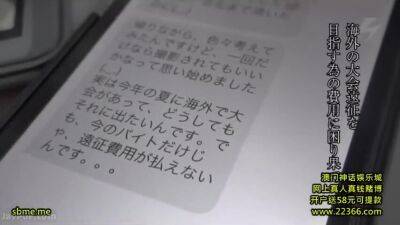 帰りながら、色々考えて
みたんですけど、一回だ
けなら撮影されてもいい
かなって思い始めました
(...)
実は今年の夏に海外で大
会があって、どうしても
それに出たいんです。で
も、今のバイトだけじ
ゃ、遠征費用が払えない
んです。。。
海外の大会遠征を
目指す為の費用に困り果
澳门神话娱乐城
网上真人真钱赌博
开户送58元可提款
www.22366.com
sbme.me